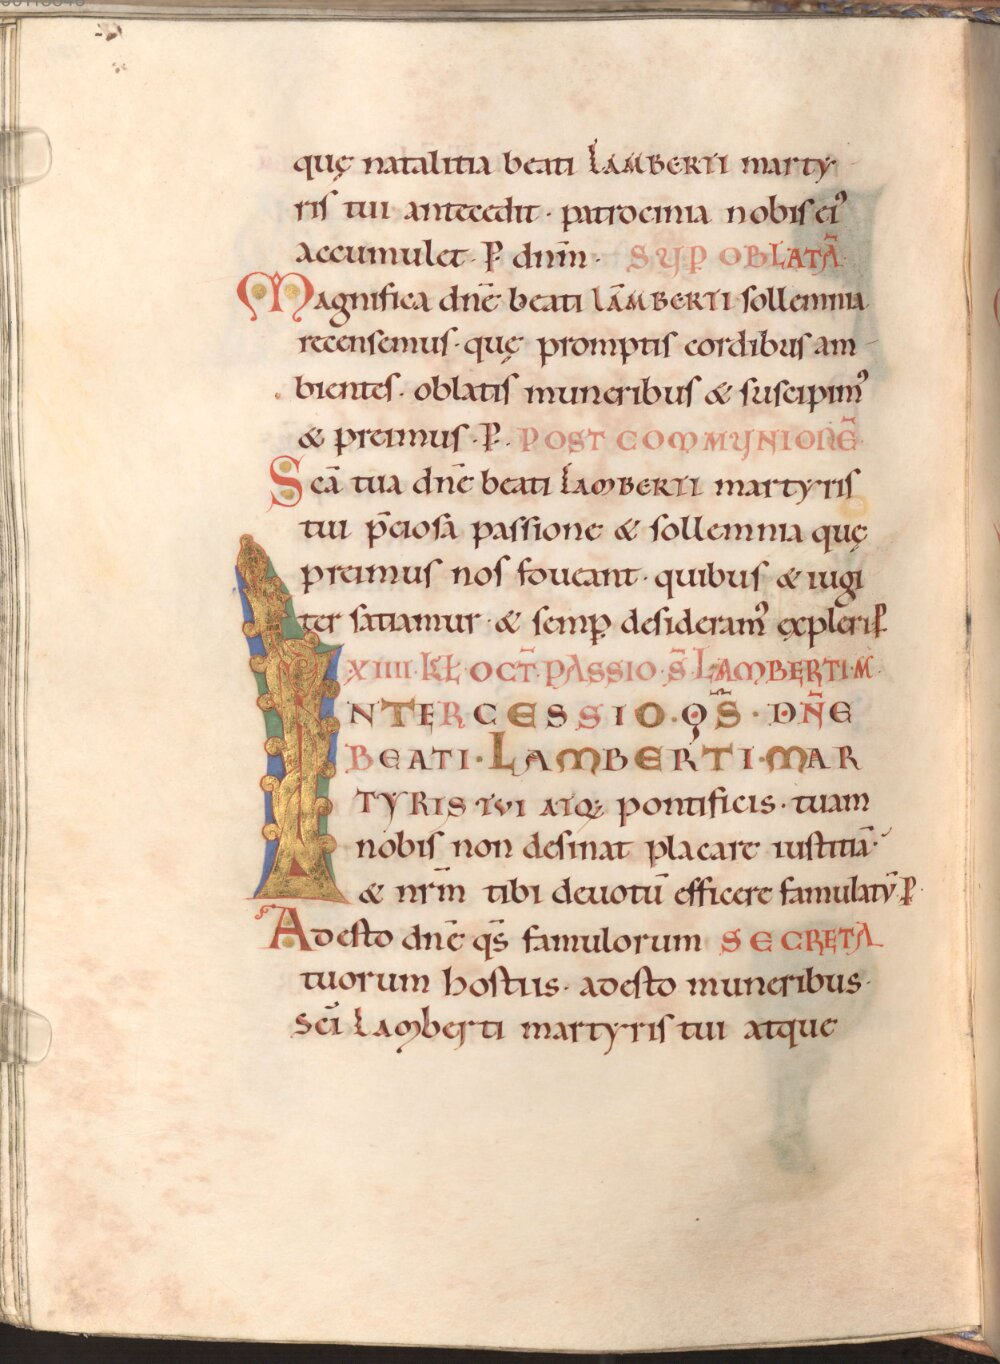 quę natalitia beati LAMBERTI marty
ris tui antecedit · patrocinia nobis ei᾽
accumulet · P̄ dnm̄ · SUP OBLATĀ
Magnifica dnē beati LĀMBERTI sollemnia
recensemus · quę promptis cordibus am
bientes · oblatis muneribus & suscipim᾽
& preimus · P̄ · POST COMMUNIONĒ
Scā tua dnē beati LAMBERTI martyris
tui p̄ciosā passione & sollemnia quę
preimus nos foueant · quibus & iugi
ter satiamur · & semp̱ desideram᾽ expleri P̄
XIIII · KŁ · OCT̄ · PASSIO · S̄ · LAMBERTI · M̄ ·
INTERCESSIO · QS̄ · DÑE
BEATI · LAMBERTI · MAR
TYRIS TUI ATQ; pontificis · tuam
nobis non desinat placare iustitiā ·
& nrm̄ tibi deuotū efficere famulatū · P̄ ·
Adesto dnē qs̄ famulorum SECRETA
tuorum hostiis · adesto muneribus ·
scī Lamberti martyris tui atque